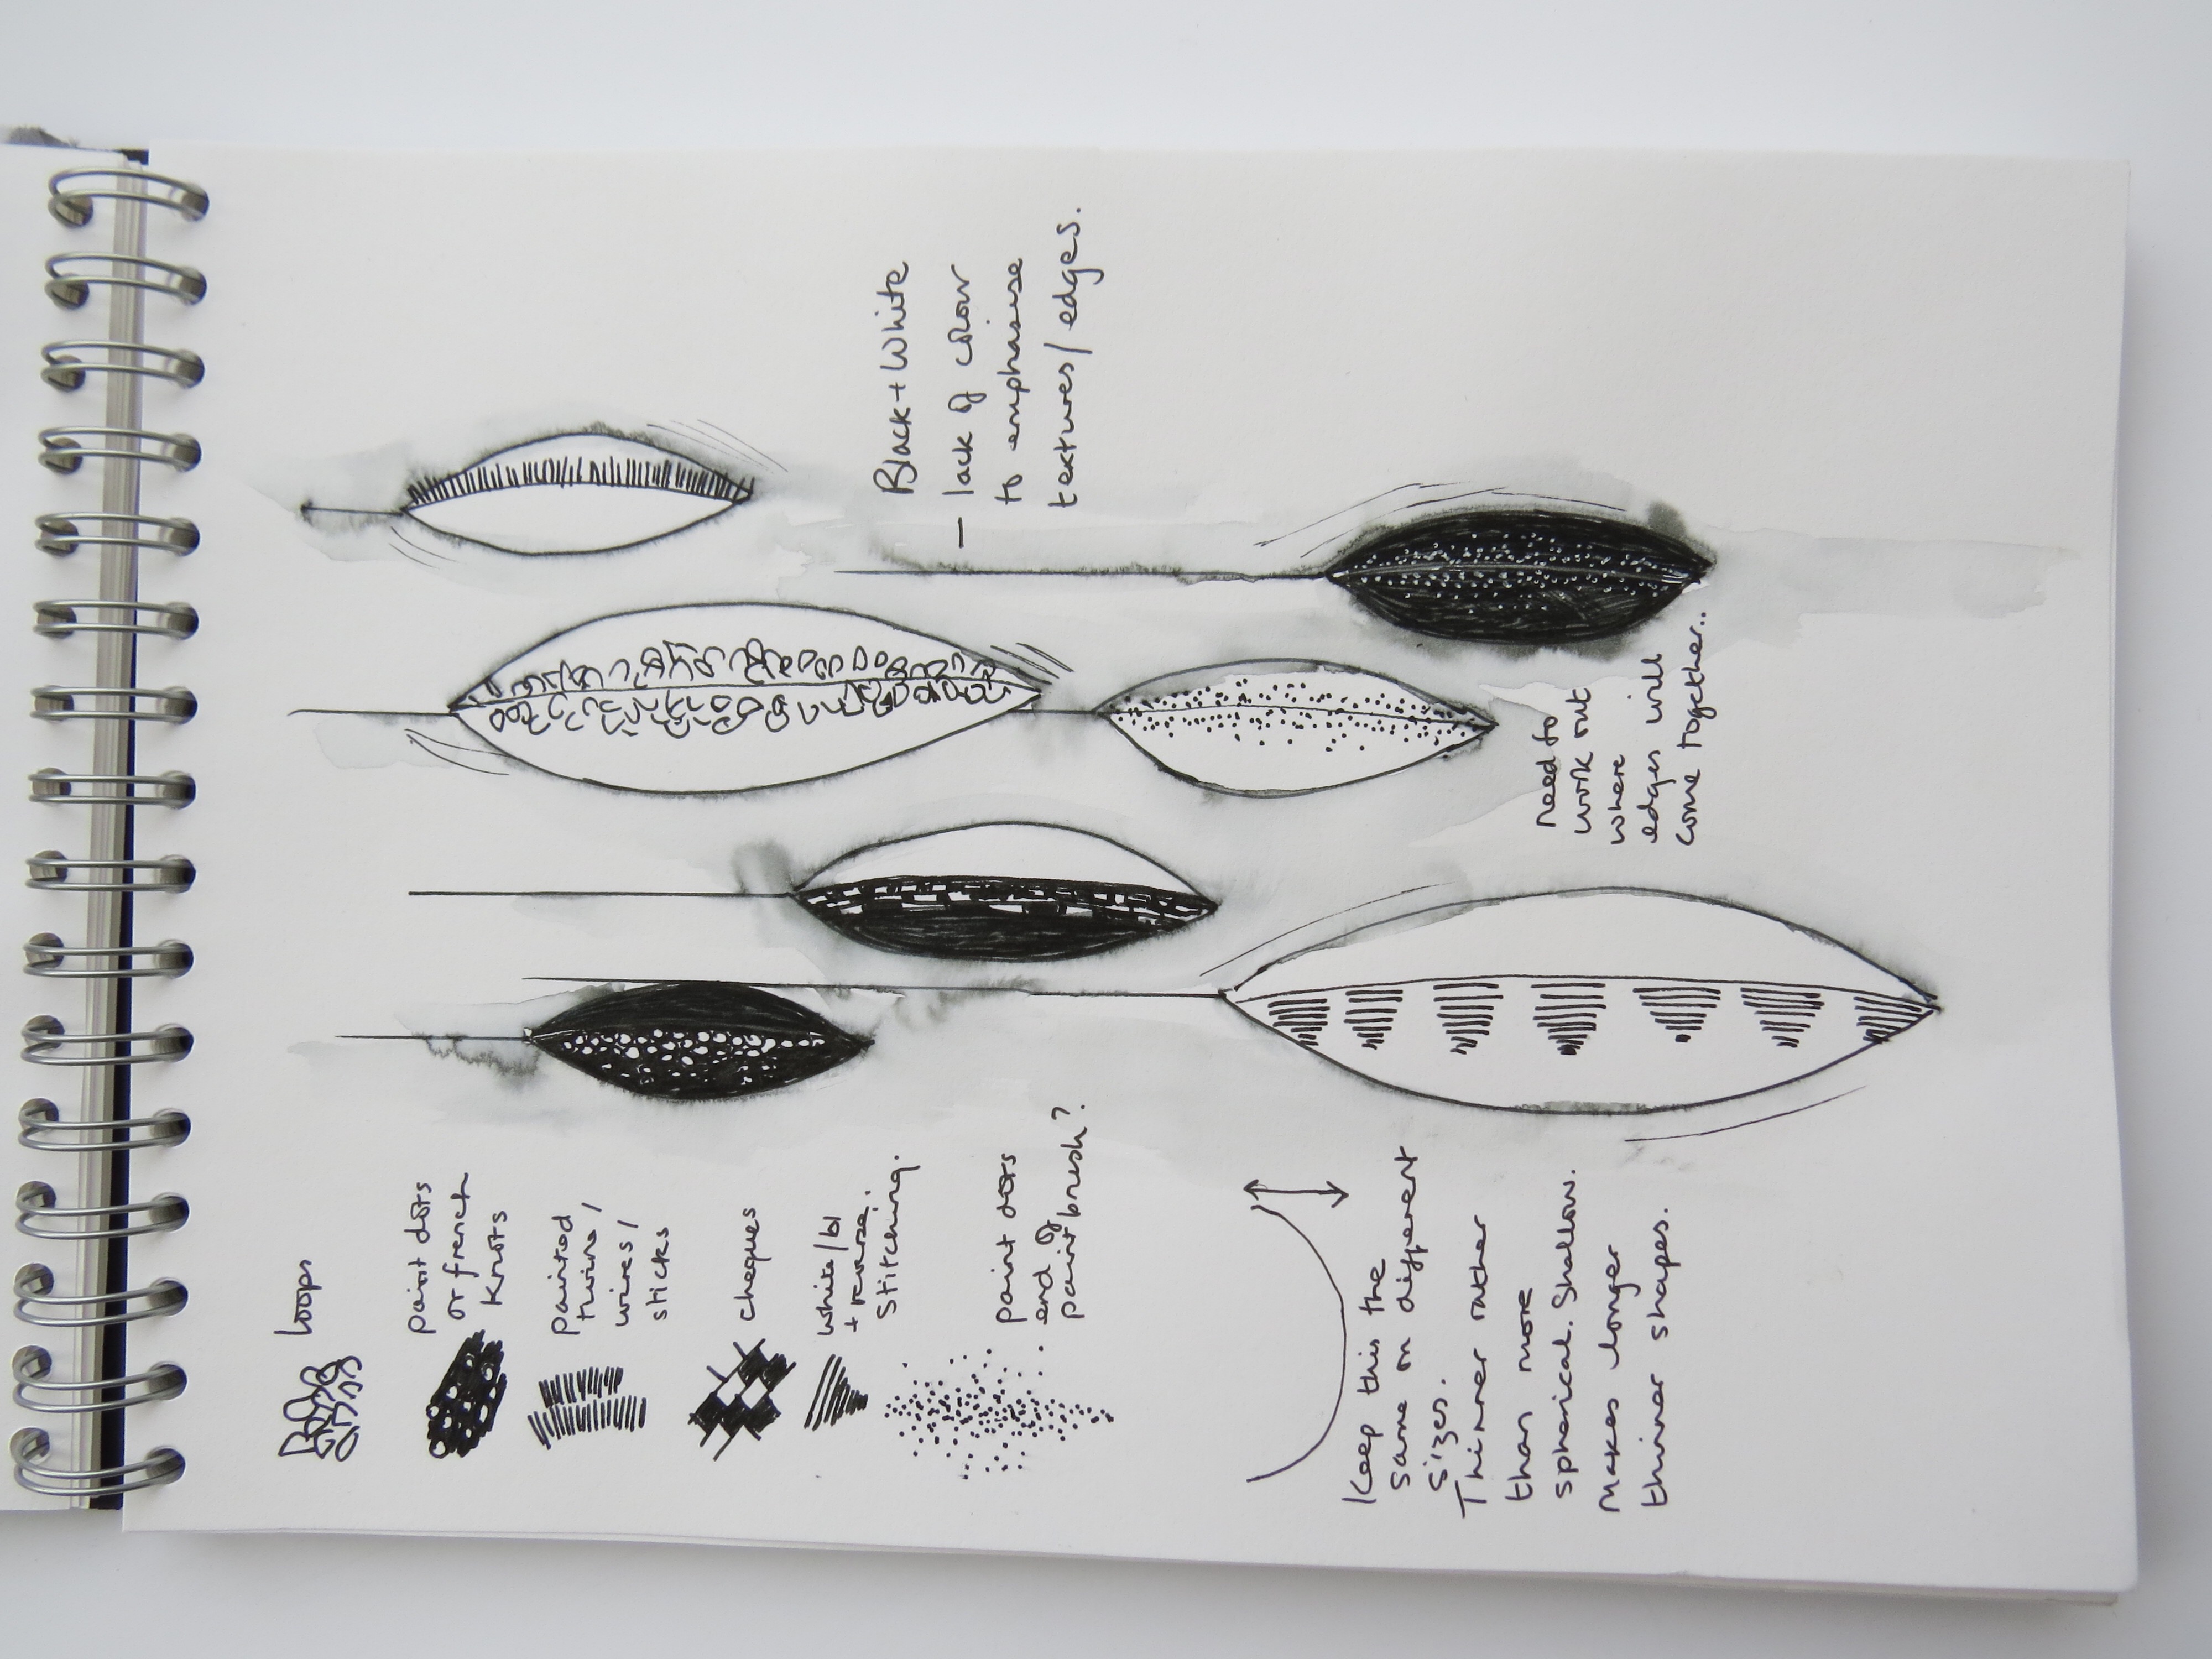 Loops
paint dots
or french
knots
painted
twine/
wires/
sticks
cheques
white/bl
+ reverse.
Stitching.
paint dots
end of
paint brush?
Keep this the
same on different
sizes.
Thinner rather
than more
spherical. Shallow.
makes longer
thinner shapes.
Black + White
— lack of colour
to emphasise
textures/edges.
need to
work out
where
edges will
come together..